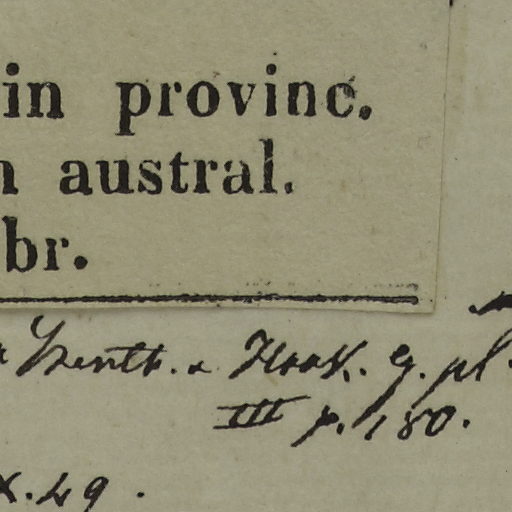 in provinc.
n austral.
br.
Benth. & Hook. g. pl.
III p. 180.
x. 49.